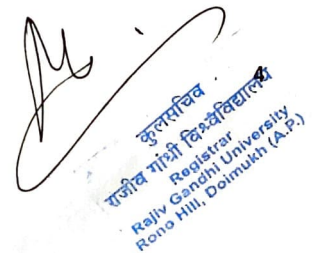 4
कुलसचिव
राजीव गांधी विश्वविद्यालय
Registrar
Rajiv Gandhi University
Rono Hill, Doimukh (A.P.)